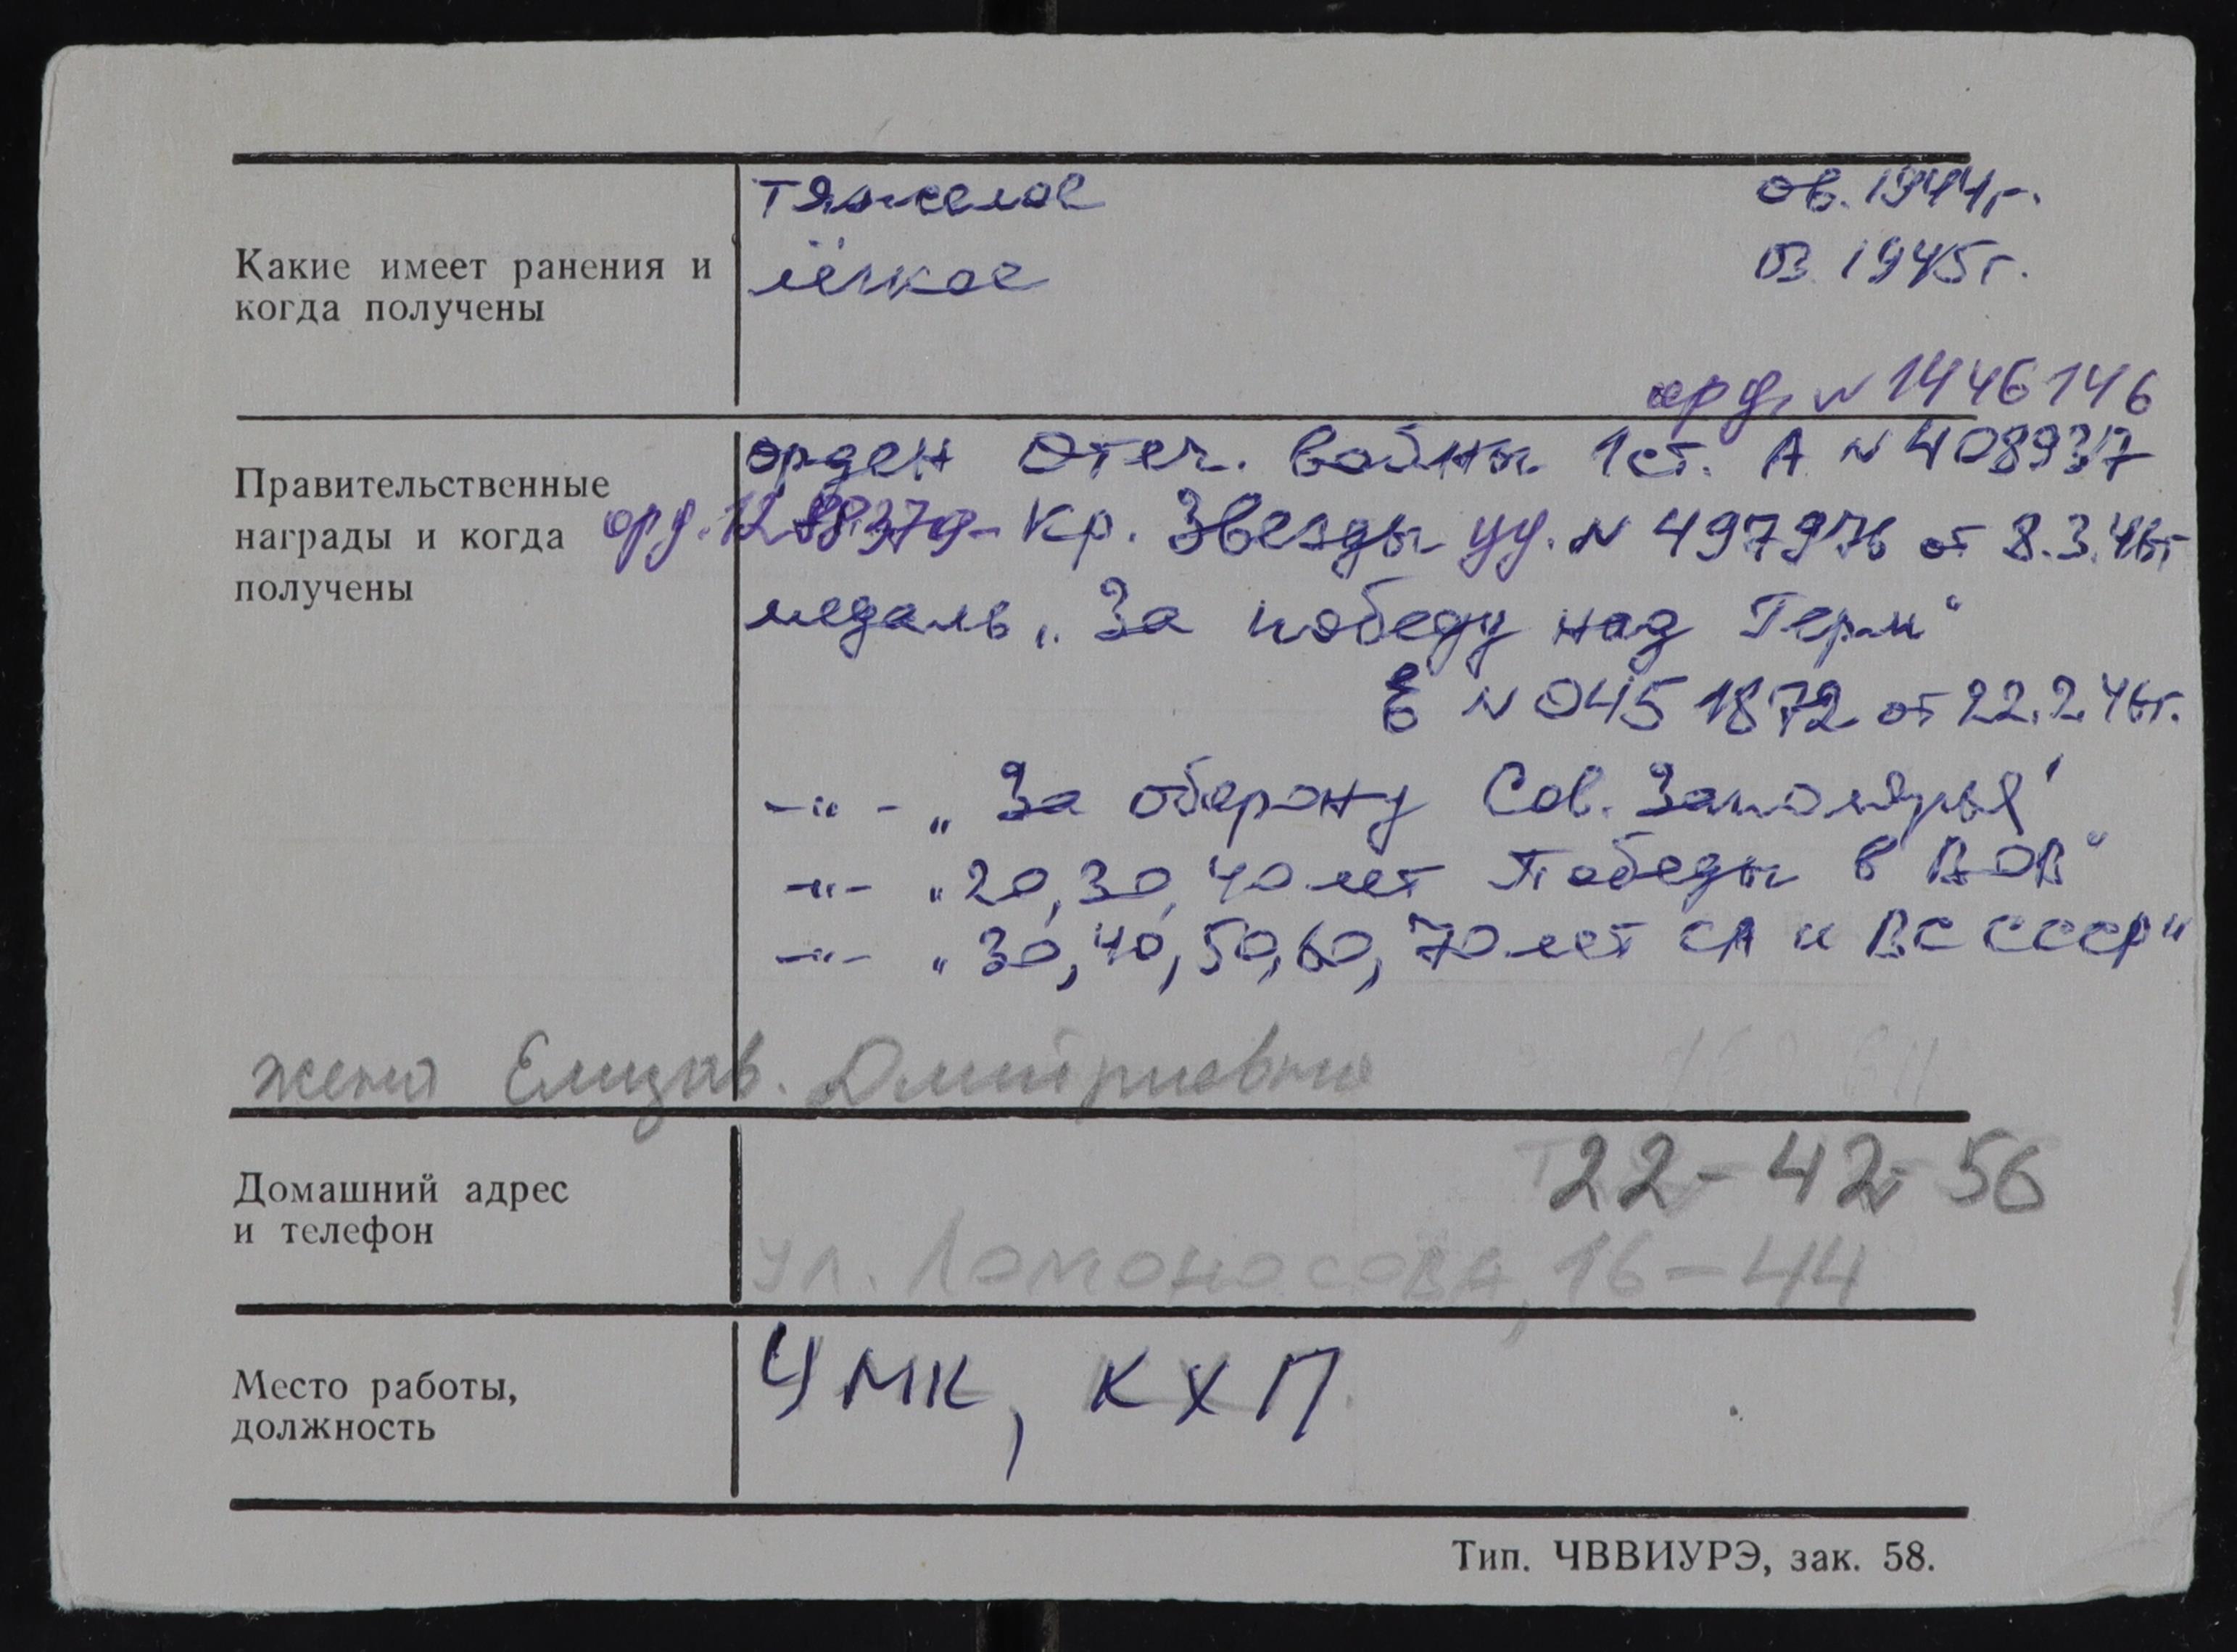 тяжелое 06.1944г.
Какие имеет ранения и
когда получены
лёгкое 03.1945г.
орд. № 1446146
орден Отеч. войны 1 ст. А № 408937
Правительственные
награды и когда
получены
орд. 1288379 - Кр. Звезды уд. № 497976 от 8.3.46г
медаль „За победу над Герм“
Е № 0451872 от 22.2.46г.
-"- „За оборону Сов. Заполярья'
-"- „20, 30, 40 лет Победы в ВОВ“
-"- „30, 40, 50, 60, 70 лет СА и ВС СССР"
жена Елизав. Дмитриевна
Домашний адрес
и телефон
Т 22-42-56
ул. Ломоносова, 16-44
Место работы,
должность
ЧМК, КХП
Тип. ЧВВИУРЭ, зак. 58.